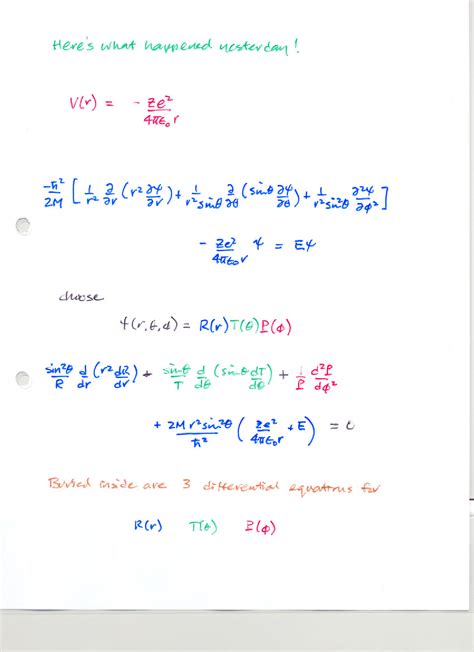 Here's what happened yesterday!
V(r) = - Ze²/4πε₀r
-ħ²/2M [ 1/r² ∂/∂r (r² ∂ψ/∂r) + 1/r² sinθ ∂/∂θ (sinθ ∂ψ/∂θ) + 1/r² sin²θ ∂²ψ/∂φ² ]
- Ze²/4πε₀r ψ = Eψ
choose
ψ(r,θ,φ) = R(r)T(θ)P(φ)
sin²θ/R d/dr (r² dR/dr) + sinθ/T d/dθ (sinθ dT/dθ) + 1/P d²P/dφ²
+ 2Mr² sin²θ/ħ² ( Ze²/4πε₀r + E ) = 0
Buried inside are 3 differential equations for
R(r) T(θ) P(φ)